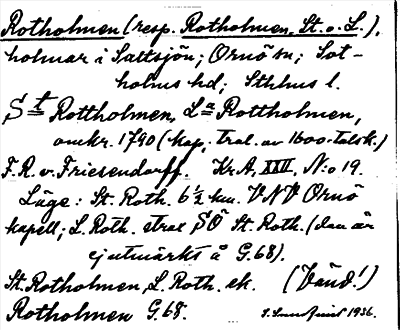 Rotholmen (resp. Rotholmen, St. o. L.),
holmar i Saltsjön; Ornö sn; Sot-
holms hd; Sthlms l.
St Rottholmen, La Rottholmen,
omkr. 1790 (kop. trol. av 1600-talsk.)
F. R. v. Friesendorff. Kr. A. XXII, N:o 19.
Läge: St. Roth. 6 1/2 km. VNV Ornö
kapell; L. Roth. strax SÖ St. Roth. (den är
ej utmärkt å G. 68).
St. Rotholmen, L. Roth. ek. (Vänd!)
Rotholmen G. 68. 1936.